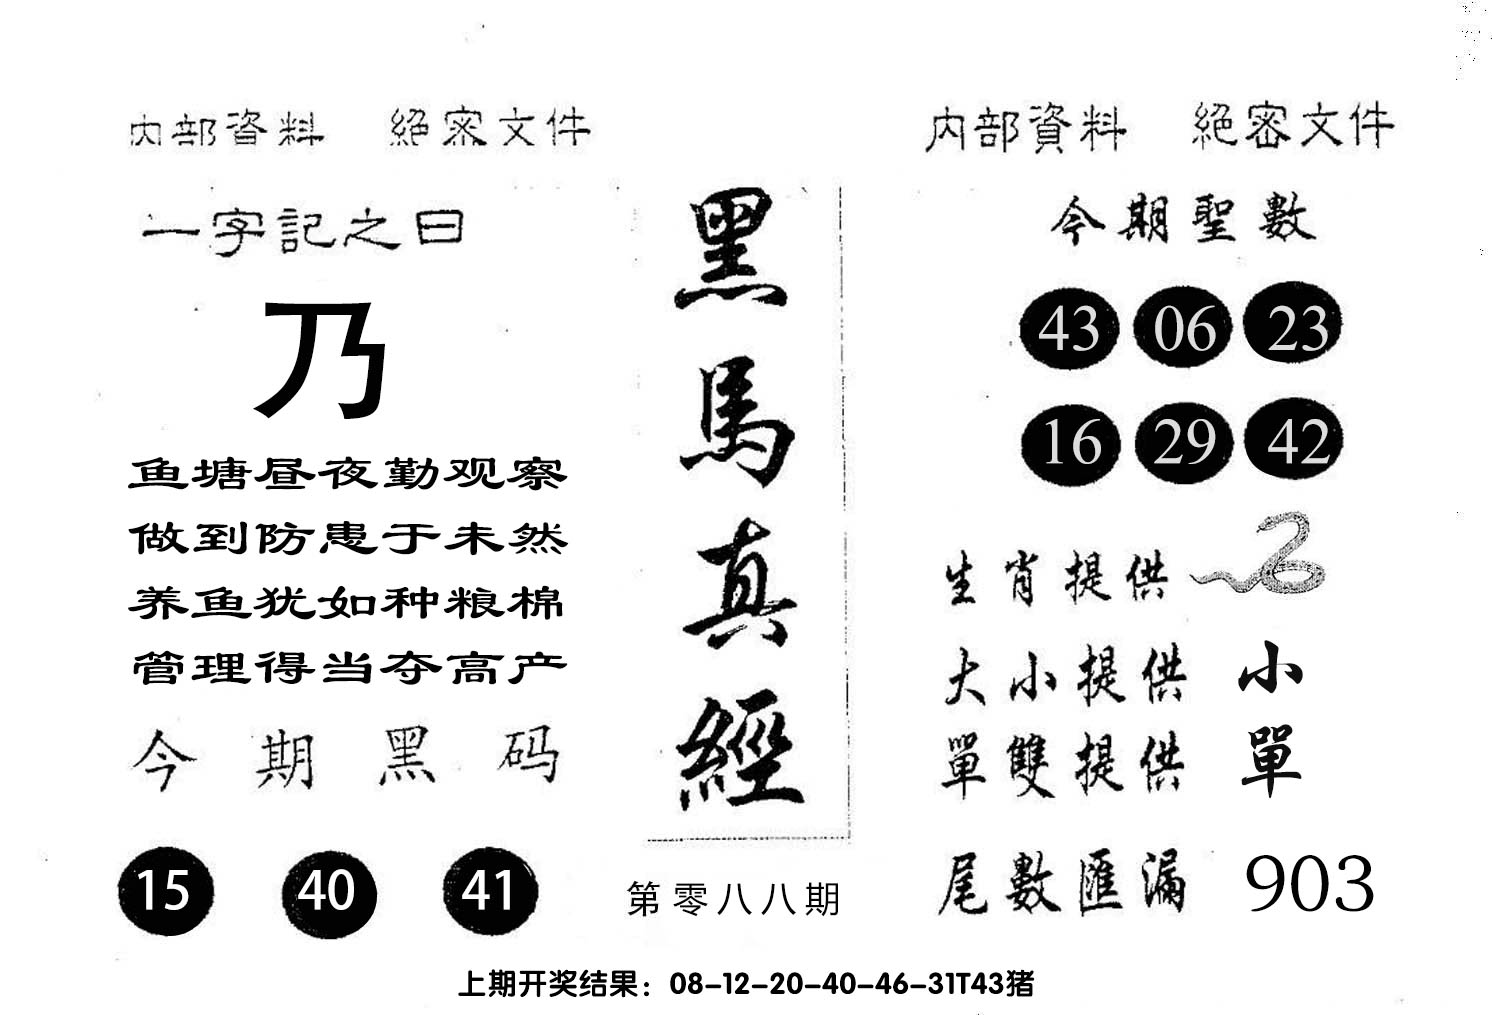 内部資料 絕密文件
一字記之曰
乃
鱼塘昼夜勤观察
做到防患于未然
养鱼犹如种粮棉
管理得当夺高产
今期黑码
15 40 41
黑馬真經
第零八八期
内部資料 絕密文件
今期聖數
43 06 23
16 29 42
生肖提供
大小提供 小
單雙提供 單
尾數匯漏 903
上期开奖结果：08-12-20-40-46-31T43猪